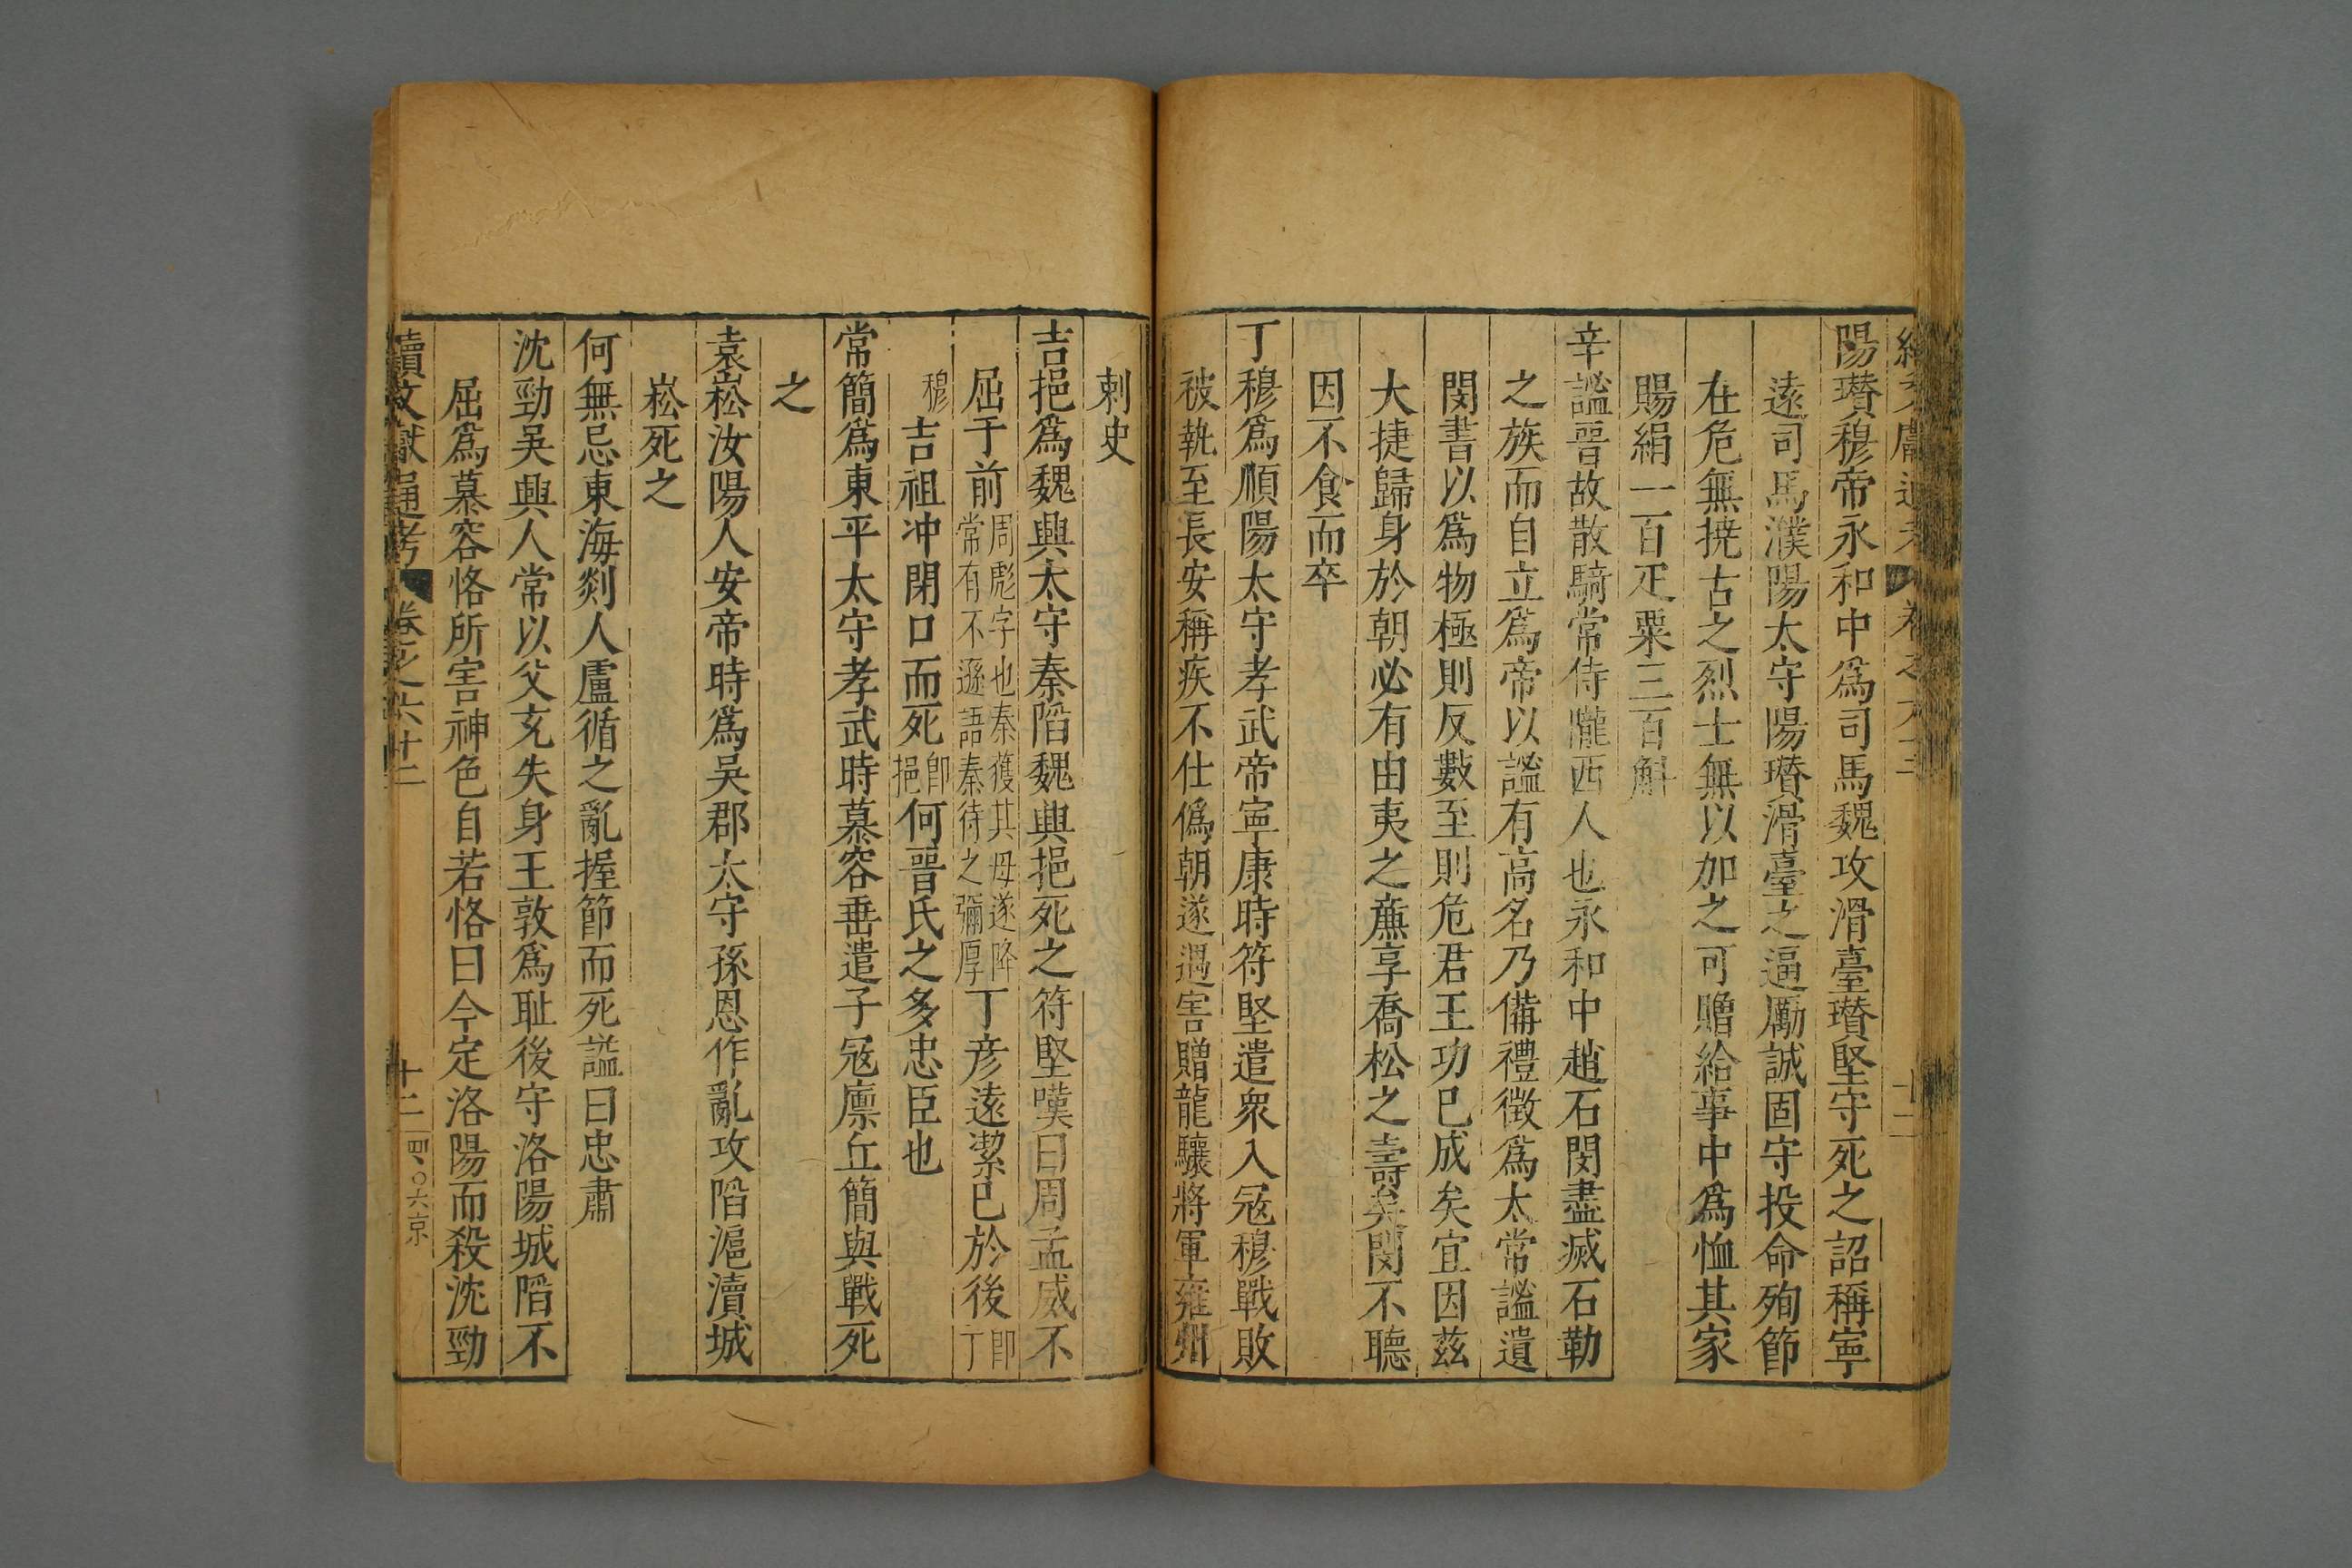 陽瓚穆帝永和中爲司馬魏攻滑臺瓚堅守死之詔稱寧
遠司馬濮陽太守陽瓚滑臺之逼厲誠固守投命殉節
在危無撓古之烈士無以加之可贈給事中爲恤其家
賜絹一百疋粟三百斛
辛謐晋故散騎常侍隴西人也永和中趙石閔盡滅石勒
之族而自立爲帝以謐有高名乃備禮徵爲太常謐遺
閔書以爲物極則反數至則危君王功已成矣宜因茲
大捷歸身於朝必有由夷之亷享喬松之壽矣閔不聽
因不食而卒
丁穆爲順陽太守孝武帝寧康時符堅遣衆入冦穆戰敗
被執至長安稱疾不仕僞朝遂遇害贈龍驤將軍雍州
刺史
吉挹爲魏興太守秦陷魏興挹死之符堅嘆曰周孟威不
屈于前周彪字也秦獲其母遂降常有不遜語秦待之彌厚丁彦遠潔已於後即丁
穆吉祖冲閉口而死即挹何晋氏之多忠臣也
常簡爲東平太守孝武時慕容垂遣子冦廪丘簡與戰死
之
袁崧汝陽人安帝時爲吳郡太守孫恩作亂攻陷滬瀆城
崧死之
何無忌東海剡人盧循之亂握節而死謚曰忠肅
沈勁吳興人常以父充失身王敦爲耻後守洛陽城陷不
屈爲慕容恪所害神色自若恪曰今定洛陽而殺沈勁
續文獻通考 卷之六十二 十二 四〇六京